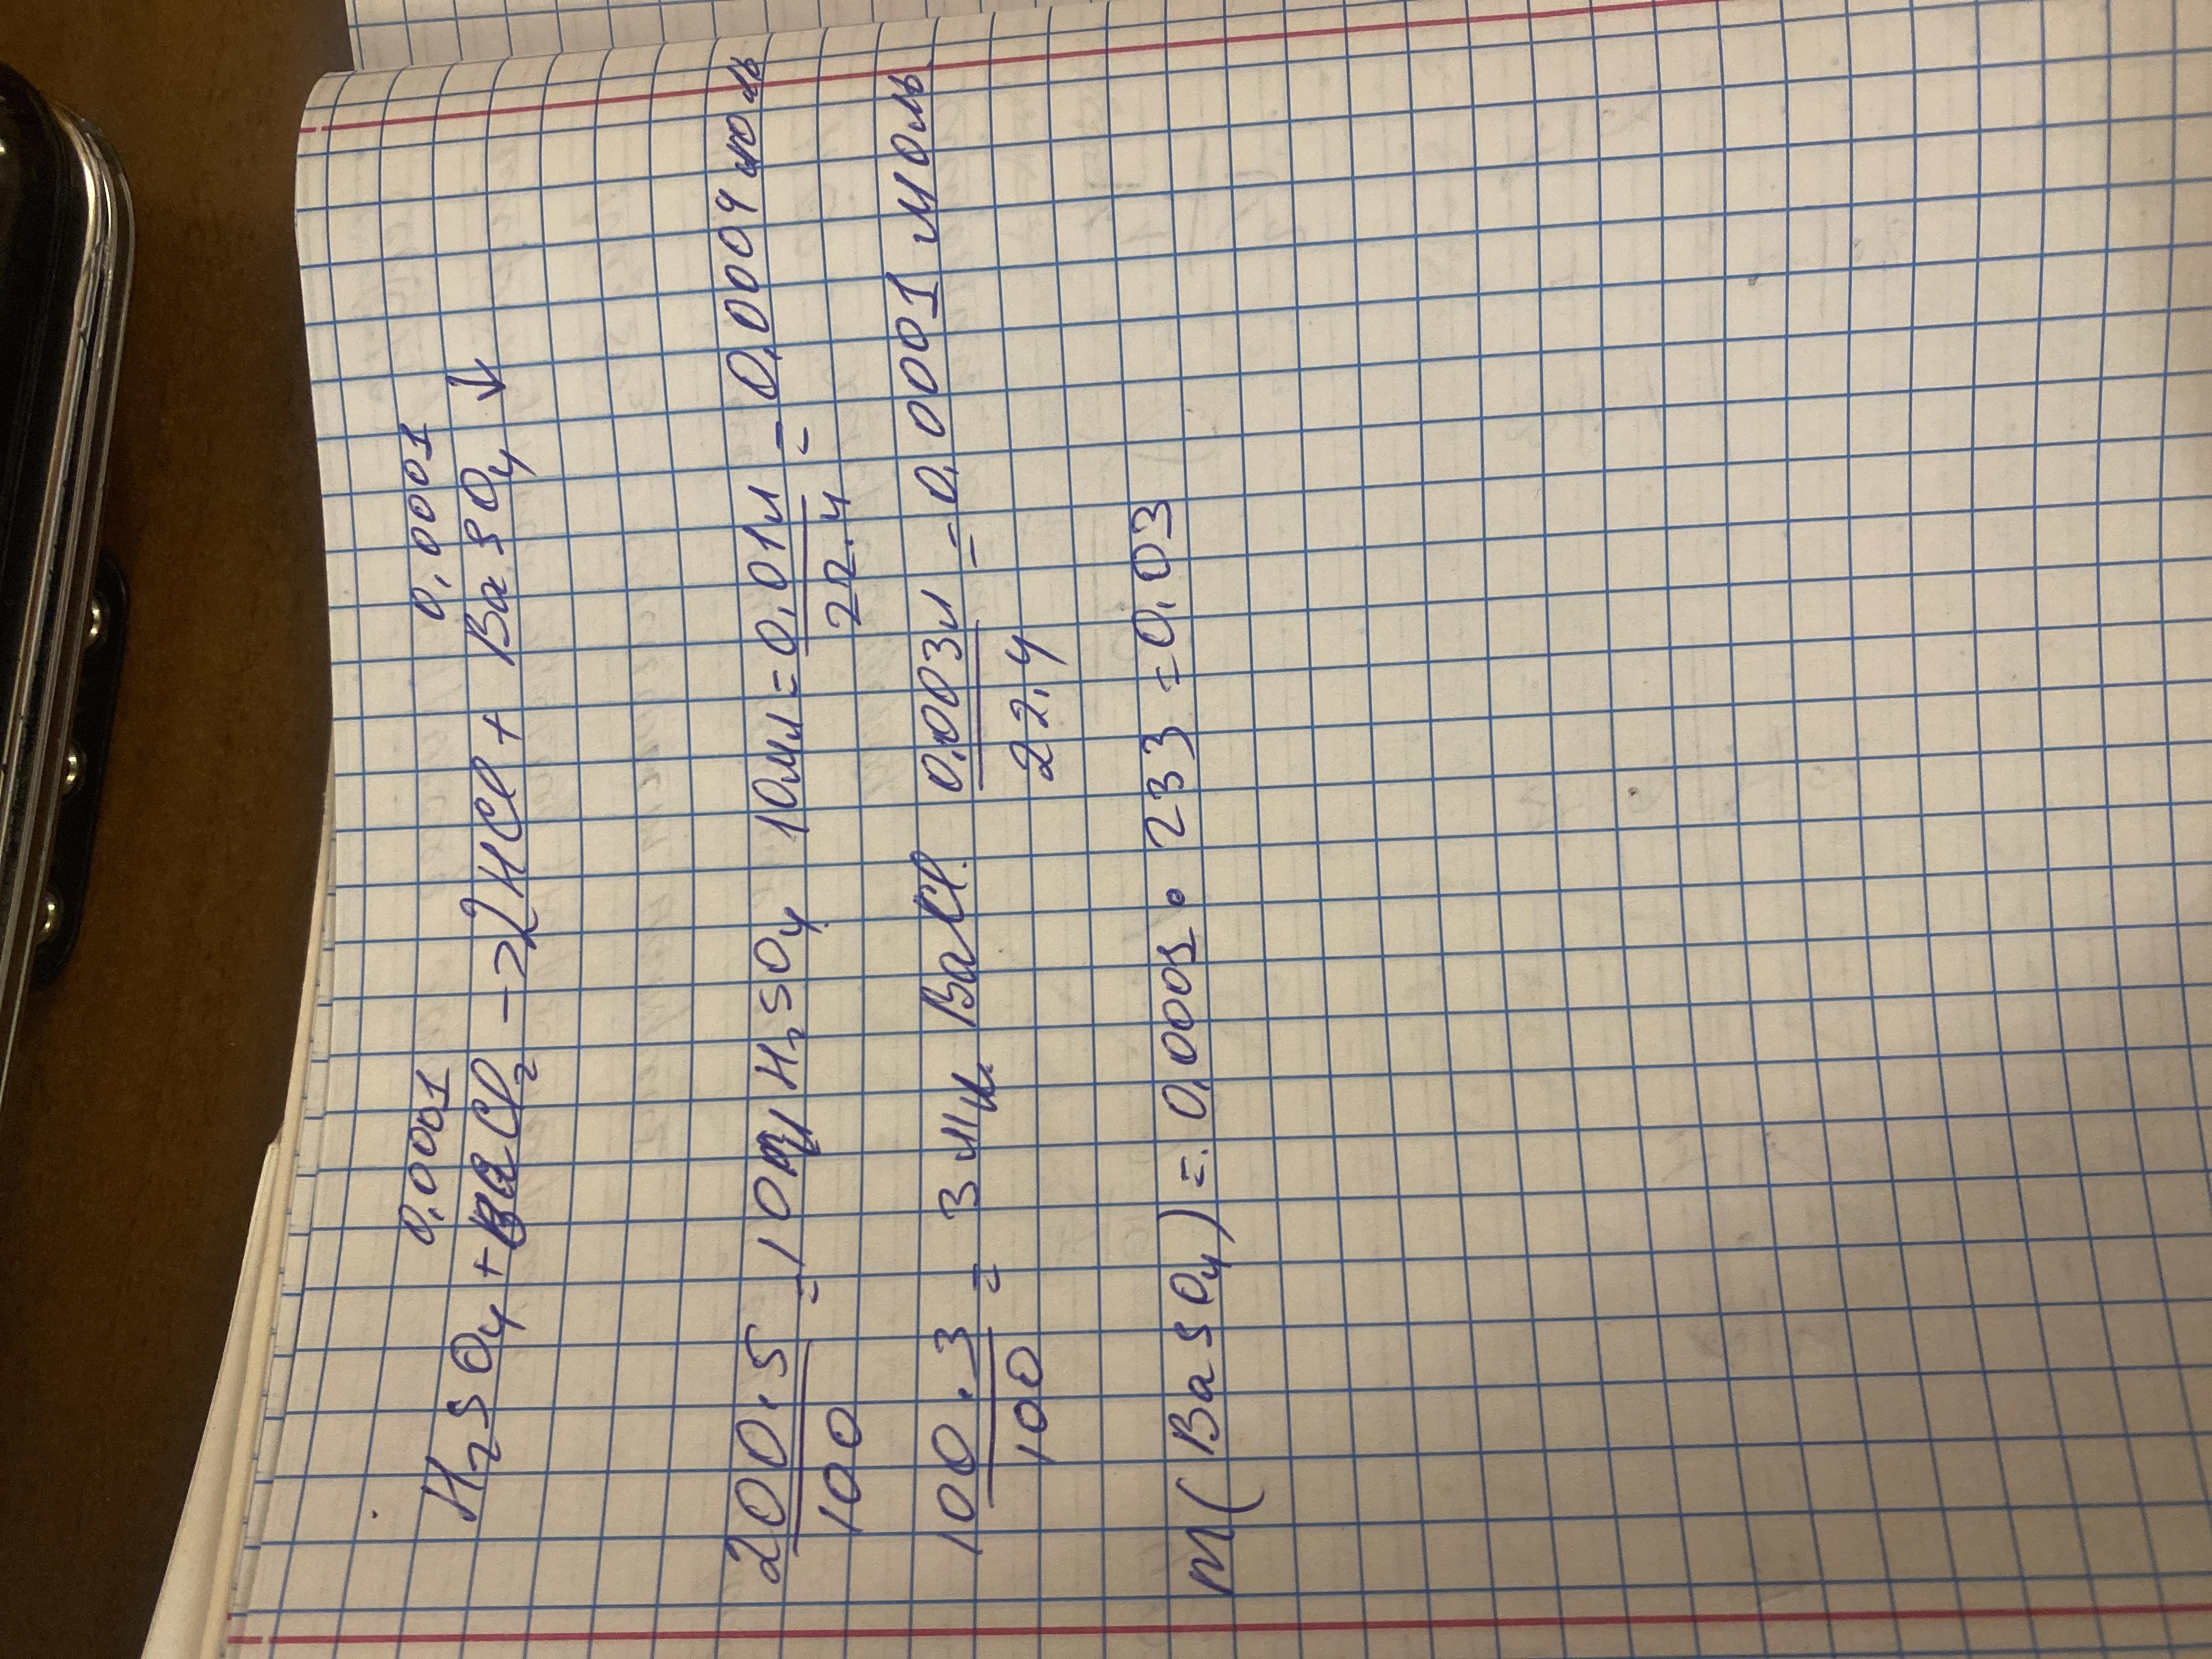 0,0001 0,0001
H₂SO₄ + BaCl₂ → 2HCl + BaSO₄ ↓
200.5 / 100 = 10 H₂SO₄ 10мл = 0,01л / 22.4 = 0,0004 моль
100.3 / 100 = 3 мл BaCl. 0,003л / 22,4 = 0,0001 моль
m(BaSO₄) = 0,0001 • 233 = 0,03